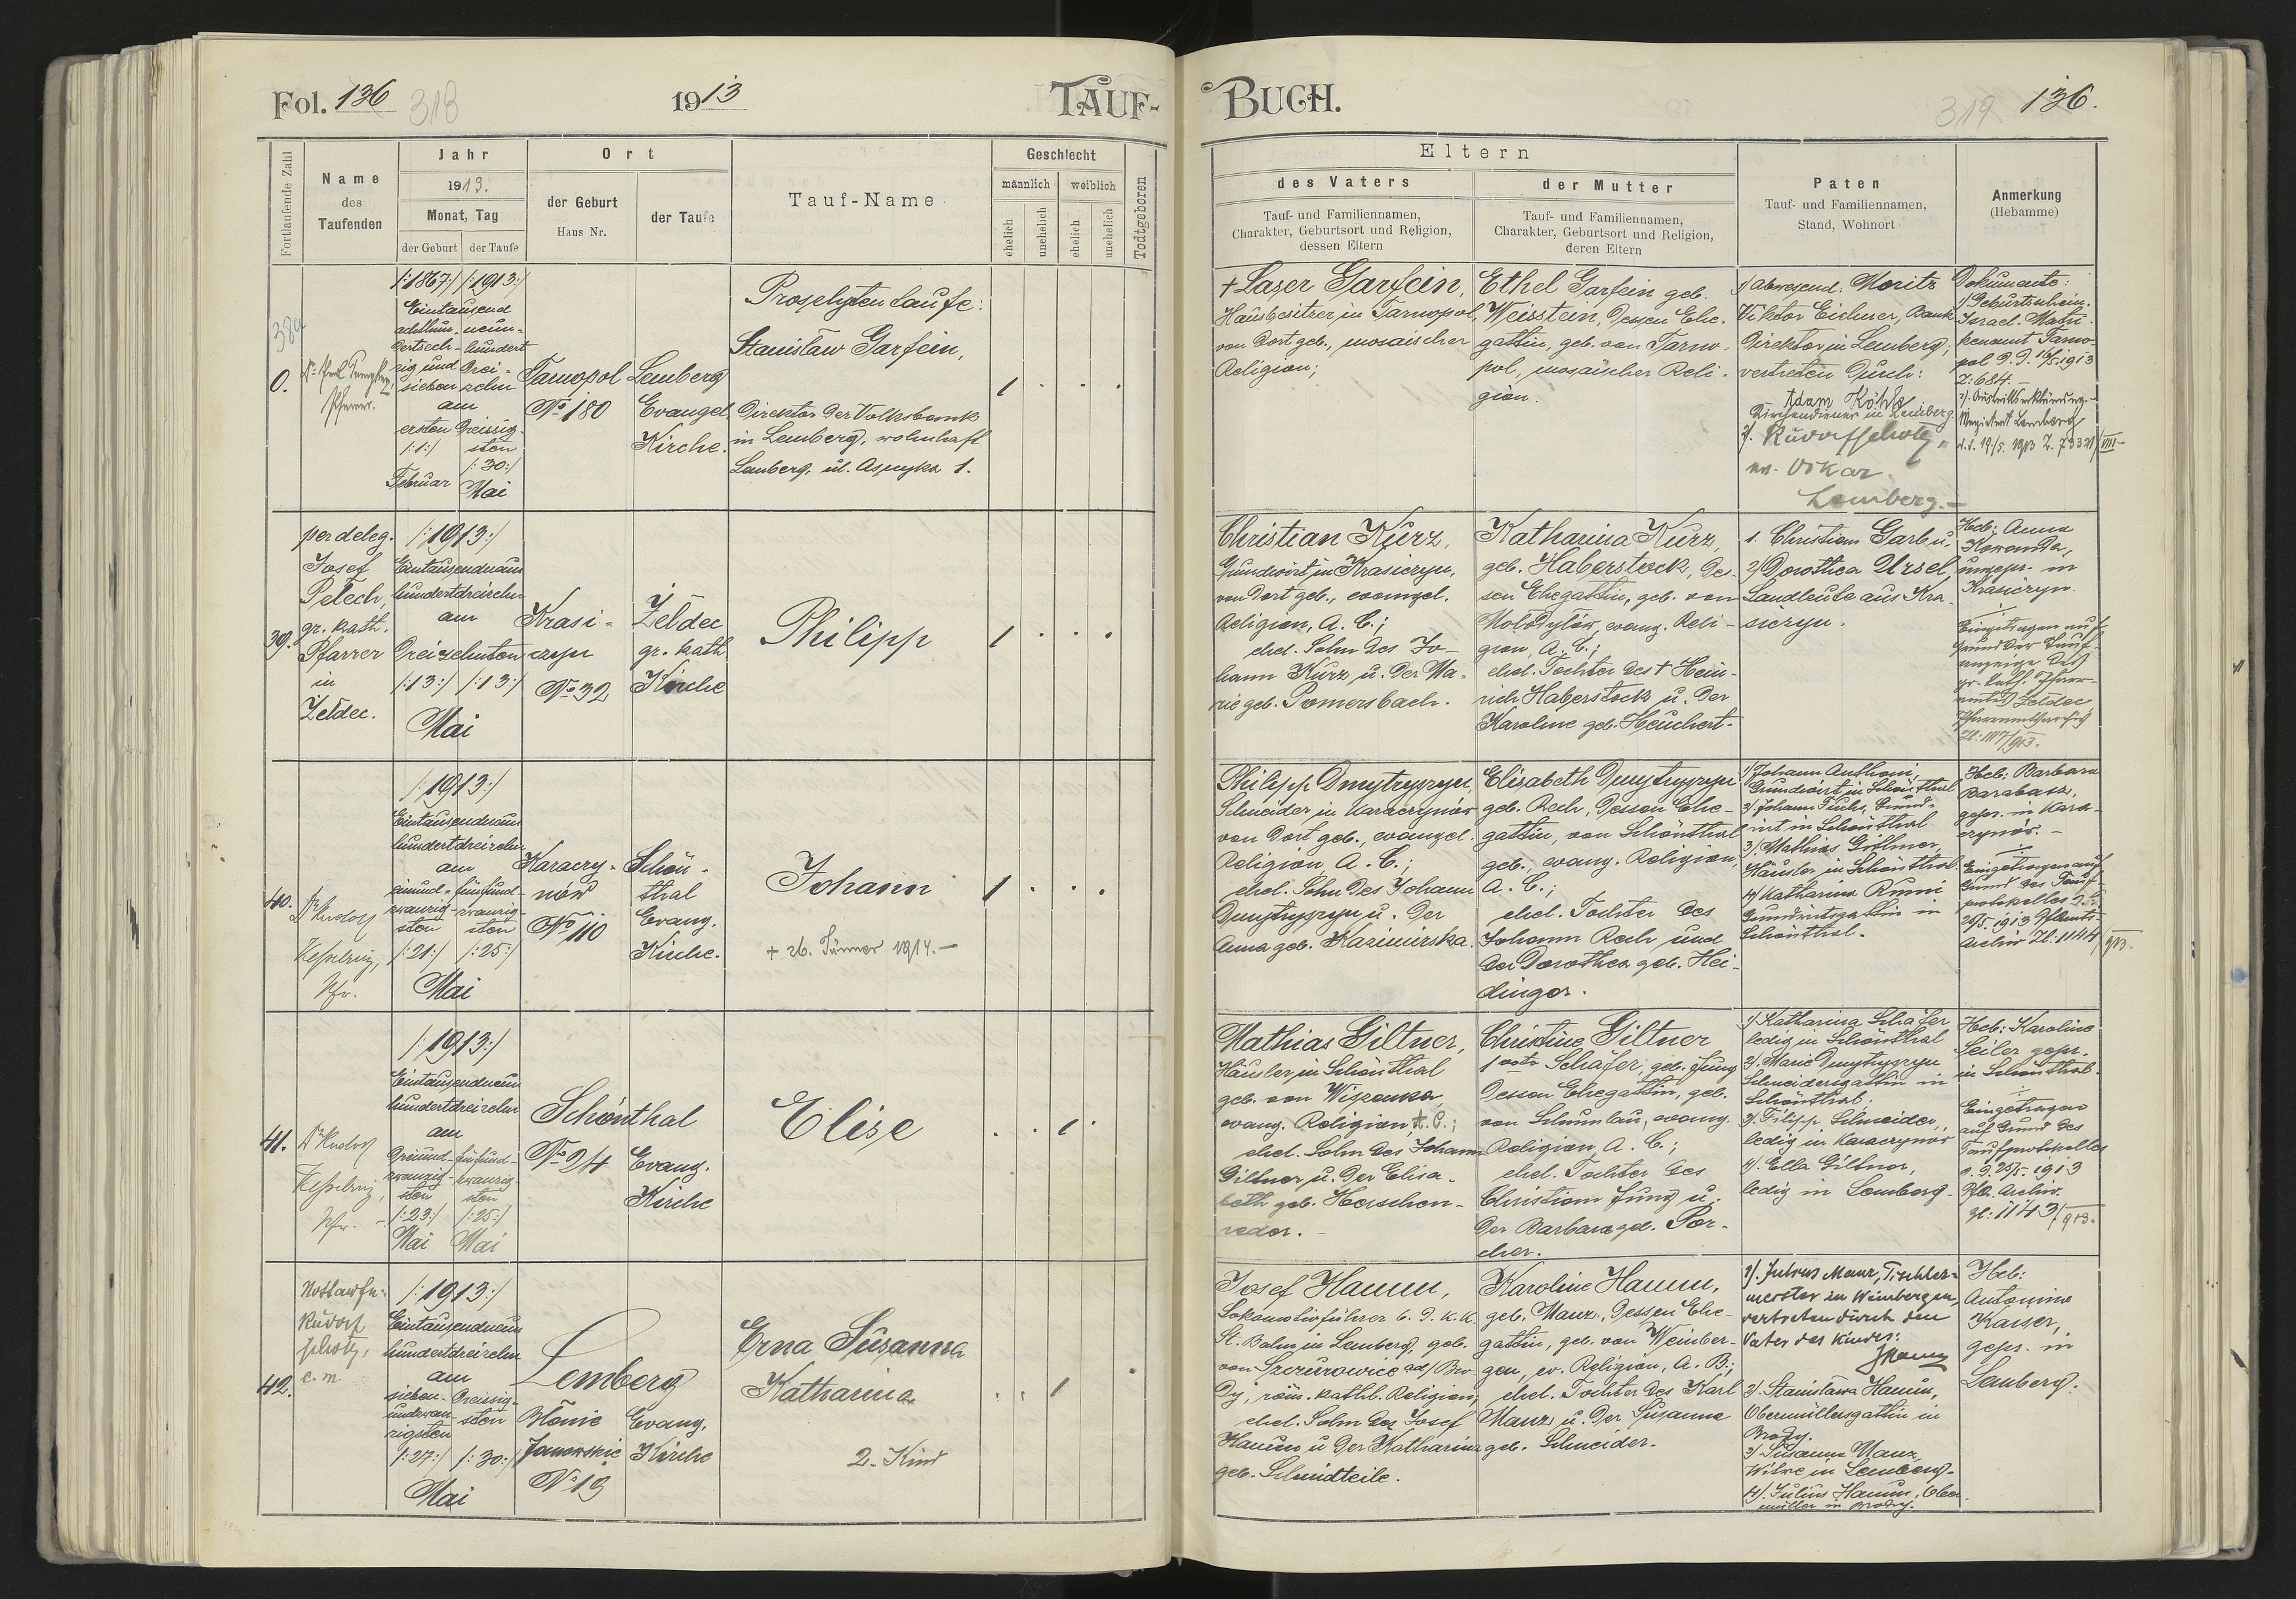 Fol. 136
318
1913
TAUF-
BUCH.
319
136.
Fortlaufende Zahl
Name
des
Taufenden
Jahr
1913.
Monat, Tag
der Geburt
der Taufe
Ort
der Geburt
Haus Nr.
der Taufe
Tauf-Name
Geschlecht
männlich
weiblich
ehelich
unehelich
ehelich
unehelich
Todtgeboren
Eltern
des Vaters
Tauf- und Familiennamen,
Charakter, Geburtsort und Religion,
dessen Eltern
der Mutter
Tauf- und Familiennamen,
Charakter, Geburtsort und Religion,
deren Eltern
Paten
Tauf- und Familiennamen,
Stand, Wohnort
Anmerkung
(Hebamme)
38a
0.
Pfarrer.
/:1867:/ /:1913:/
Eintausend
achthun- neun-
dertsech- hundert
zig und drei-
sieben zehn
am
ersten dreissig-
/:1:/ sten
/:30:/
Februar Mai
Tarnopol
No 180
Lemberg
Evangel.
Kirche.
Proselytentaufe:
Stanislaw Garfein,
Direktor der Volksbank
in Lemberg, wohnhaft
Lemberg, ul. Asnyka 1.
1
+ Laser Garfein,
Hausbesitzer in Tarnopol,
von dort geb., mosaischer
Religion;
Ethel Garfein geb.
Weisstein, dessen Ehe-
gattin, geb. von Tarno-
pol, mosaischer Reli-
gion.
1/ Abwesend: Moritz
Viktor Eichner, Bank
Direktor in Lemberg,
vertreten durch:
Adam
Kirchendiener in Lemberg
2/. Rudolf
ev. Vikar
Lemberg.-
Dokumente:
1/ Geburtsschein,
Israel. Matri-
kenamt Tarno-
pol 1913
Z: 684.-
2/. Austrittserklärung-
Magistrat Lemberg
d.d. 19/5. 1913 Z. 73321/VIII-
39.
per deleg.
Josef
Petech,
gr. kath.
Pfarrer
in
Zeldec.
/:1913:/
Eintausendneun
hundertdreizehn
am
dreizehnten
/:13:/ /:13:/
Mai
Krasi-
czyn
No 32
Zeldec
gr. kath
Kirche
Philipp
1
Christian Kurz,
Grundwirt in Krasiczyn,
von dort geb., evangel.
Religion, A. C.;
ehel. Sohn des Jo-
hann Kurz u. der Ma-
rie geb. Pomersbach.
Katharina Kurz,
geb. Haberstock, des-
sen Ehegattin, geb. von
Mołodyłów, evang. Reli-
gion, A. C.;
ehel. Tochter des + Hein-
rich Haberstock u. der
Karoline geb. Heuchert.
1. Christian Garb u.
2/ Dorothea Ursel,
Landleute aus Kra-
siczyn.
Heb: Anna
ungepr. in
Krasiczyn.
Eingetragen auf
Grund der Tauf-
anzeige des
gr. kath. Pfarr-
amtes Zeldec,
Zl: 1117/913.
40.
Dr Rudolf
Kesselring,
Pfr.
/:1913:/
Eintausendneun
hundertdreizehn
am
einund- fünfund-
zwanzig- zwanzig-
sten sten
/:21:/ /:25:/
Mai
Karaczy-
nów
No 110
Schön-
thal
Evang.
Kirche.
Johann
+ 26. Jänner 1914.-
1
Philipp Dmytryszyn,
Schneider in Karaczynów
von dort geb., evangel.
Religion, A. C.;
ehel. Sohn des Johann
Dmytryszyn u. der
Anna geb. Kazimirska.
Elisabeth Dmytryszyn
geb. Rech, dessen Ehe-
gattin, von Schönthal
geb., evang. Religion,
A. C.;
ehel. Tochter des
Johann Rech und
der Dorothea geb. Hei-
dinger.
1/ Johann Anthoni,
Grundwirt in Schönthal
2/. Johann Fuchs, Grund-
wirt in Schönthal
3/. Mathias Giltner,
Häusler in Schönthal
4/ Katharina Rumi
Grundwirtsgattin in
Schönthal.
Heb: Barbara
Barabasz,
gepr. in Kara-
czynów.-
Eingetragen auf
Grund des Tauf-
protokolles d.d.
25/5. 1913 Pfarrts-
Archiv Zl: 1144/913.
41.
Dr Rudolf
Kesselring,
Pfr.-
/:1913:/
Eintausendneun
hundertdreizehn
am
dreiund- fünfund-
zwanzig- zwanzig-
sten sten
/:23:/ /:25:/
Mai Mai
Schönthal
No 24
Evang.
Kirche
Elise
1
Mathias Giltner,
Häusler in Schönthal
geb. von Wiszenka,
evang. Religion, A. C.;
ehel. Sohn des Johann
Giltner u. der Elisa-
beth geb. Herschen-
reder.-
Christine Giltner
1 voto Schäfer, geb. Jung
dessen Ehegattin, geb.
von Schumlau, evang.
Religion, A. C.;
ehel. Tochter des
Christian Jung u.
der Barbara geb. Por-
cher.
1/ Katharina Schäfer
ledig in Schönthal
2/. Marie Dmytryszyn
Schneidersgattin in
Schönthal.
3/. Filipp Schneider,
ledig in Karaczynów
4/. Ella Giltner,
ledig in Lemberg.
Heb: Karoline
Seiler gepr.
in Schönthal.
Eingetragen
auf Grund des
Taufprotokolles
d.d. 25/5. 1913
Pfr. Archiv.
Zl: 1143/913.
42.
Nottaufe:
Rudolf
c. m
/:1913:/
Eintausendneun
hundertdreizehn
am
sieben- dreissig-
undzwan- sten
zigsten
/:27:/ /:30:/
Mai
Lemberg
Błonie
Janowskie
No 19
Evang.
Kirche
Erna Susanna
Katharina
2. Kind
1
Josef Hamm,
Lokomotivführer b. d. k. k.
St. Bahn in Lemberg, geb.
von Szczurowice ad/ Bro-
dy, röm. kathl. Religion,
ehel. Sohn des Josef
Hamm u der Katharina
geb. Schmidteile.
Karoline Hamm,
geb. Manz, dessen Ehe-
gattin, geb. von Weinber-
gen, ev. Religion, A. B.;
ehel. Tochter des Karl
Manz u. der Susanne
geb. Schneider.
1/. Julius Manz, Tischler-
meister in Weinbergen,
vertreten durch den
Vater des Kindes:
JHamm
2/. Stanisława Hamm,
Obermüllersgattin in
Brody.
3/ Susanna Manz,
Witwe in Lemberg.
4/. Julius Hamm, Ober-
müller in Brody.
Heb:
Antonina
Kaiser,
gepr. in
Lemberg.